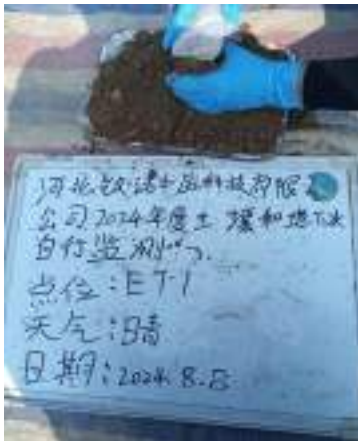 河北钦诺士医科技有限
公司2024年度土壤和地下水
自行监测
点位:ET-1
天气:晴
日期:2024.8.8